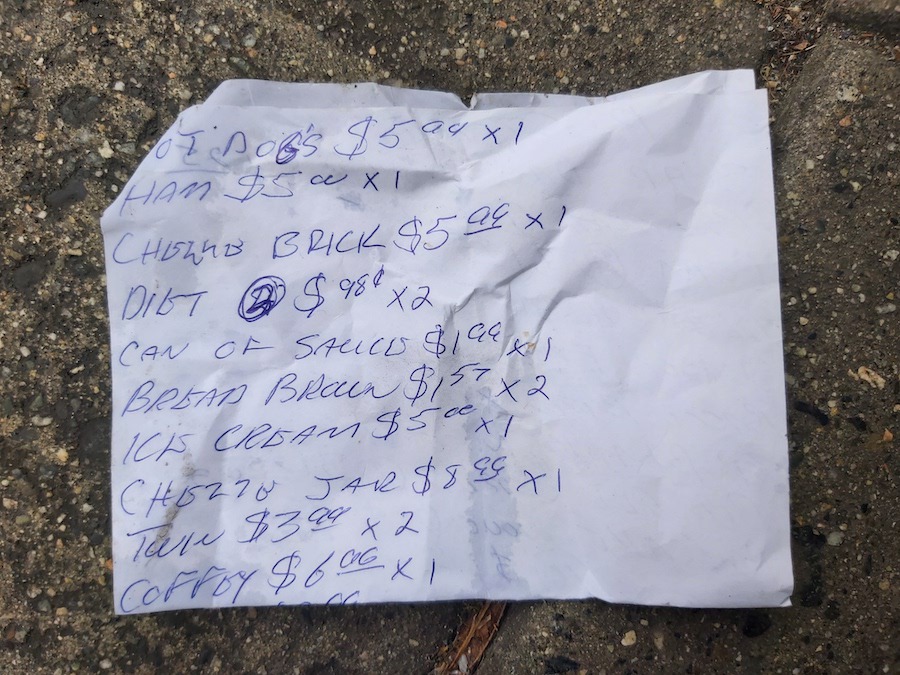 OT DOG'S $5.99 x 1
HAM $5.00 x 1
CHEZZE BRICK $5.99 x 1
DIET $ 98¢ x 2
CAN OF SAUCE $1.99 x 1
BREAD BROWN $1.57 x 2
ICE CREAM $5.00 x 1
CHEZZE JAR $8.99 x 1
TWIN $3.99 x 2
COFFEY $6.96 x 1